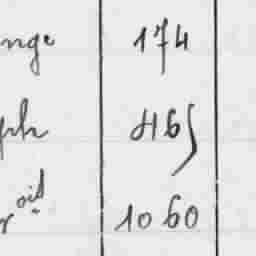 nge 174
ph 465
r oil 1060